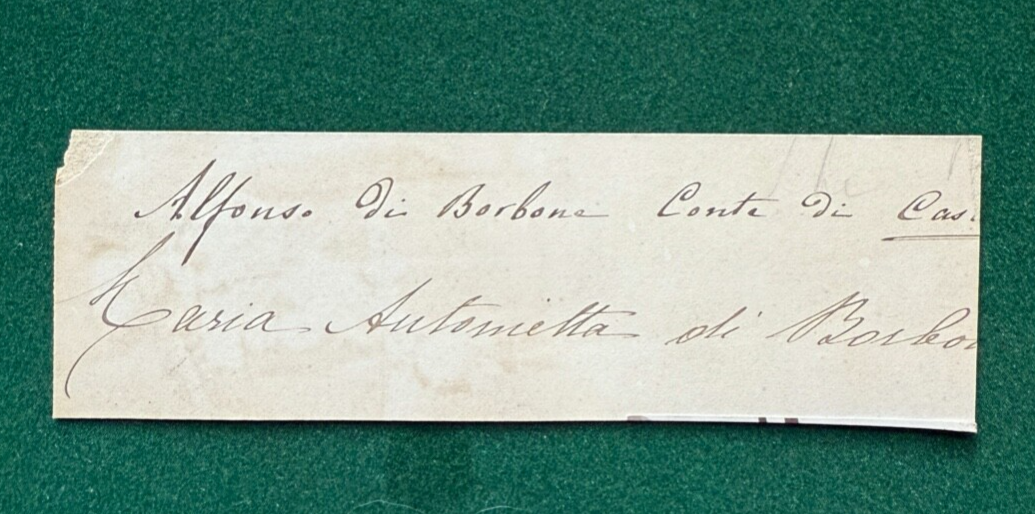 Alfonso di Borbone Conte di Cas
Maria Antonietta di Borbon